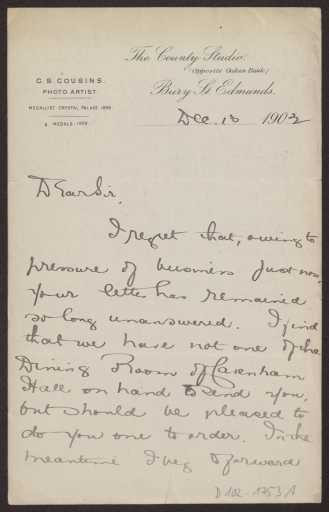 The County Studio.
(Opposite Oakes Bank)
Bury St Edmunds.
C. S. COUSINS.
PHOTO ARTIST.
MEDALLIST CRYSTAL PALACE 1898
MEDALS 1899
Dec. 13 1902
Dear Sir,
I regret that, owing to
pressure of business just now,
your letter has remained
so long unanswered. I find
that we have not one of the
Dining Room of Cavenham
Hall on hand to send you,
but should be pleased to
do you one to order. In the
meantime I beg to forward
D102-1753A